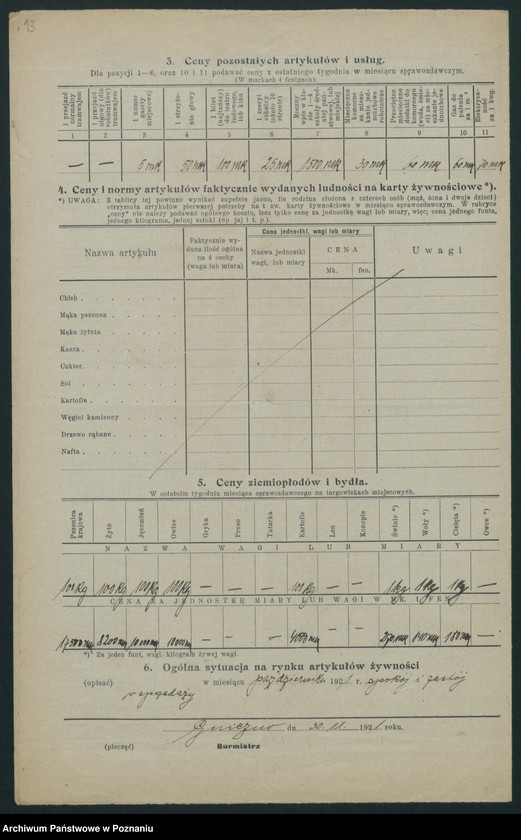 13
3. Ceny pozostałych artykułów i usług.
Dla pozycji 1—6, oraz 10 i 11 podawać ceny z ostatniego tygodnia w miesiącu sprawozdawczym.
(W markach i fenigach):
1 przejazd normalny tramwajem
1 przejazd ulgowy (dla robotników) tramwajem
1 numer gazety miejscowej
1 strzyżenie głowy
1 bilet (najtańszy) do teatru ludowego, lub kina
1 zeszyt szkolny (około 16 stronic)
Gaz do palenia za 1 m.³
Elektryczność za 1 kwg.
1 2 3 4 5 6 7 8 9 10 11
— — 5 mk 50 mk 100 mk 25 mk 1500 mk 30 mk mk 60 mk 70 mk
4. Ceny i normy artykułów faktycznie wydanych ludności na karty żywnościowe *).
*) UWAGA: Z tablicy tej powinno wynikać zupełnie jasno, ile rodzina złożona z czterech osób (mąż, żona i dwoje dzieci)
otrzymała artykułów pierwszej potrzeby na t. zw. karty żywnościowe w miesiącu sprawozdawczym. W rubryce
„ceny” nie należy podawać ogólnego kosztu, lecz tylko cenę za jednostkę wagi lub miary, więc; cena jednego funta,
jednego kilograma, jednej sztuki (np jaj i t. p.).
Nazwa artykułu
Faktycznie wydana ilość ogólna na 4 osoby (waga lub miara)
Cena jednostki, wagi lub miary
Nazwa jednostki wagi, lub miary
CENA
Mk. fen.
Uwagi
Chleb
Mąka pszenna
Mąka żytnia
Kasza
Cukier
Sól
Kartofle
Węgiel kamienny
Drzewo rąbane
Nafta
5. Ceny ziemiopłodów i bydła.
W ostatnim tygodniu miesiąca sprawozdawczego na targowiskach miejscowych.
Pszenica krajowa Żyto Jęczmień Owies Gryka Proso Tatarka Kartofle Len Konopie Świnie *) Woły *) Cielęta *) Owce *)
NAZWA WAGI LUB MIARY
100 Kg 100 Kg 100 Kg 100 Kg — — — 100 Kg — — 1 Kg 1 Kg 1 Kg —
CENA ZA JEDNOSTKĘ MIARY LUB WAGI W MK. I FEN.
8200 mk — — — 4000 mk 180 mk —
*) Za jeden funt, wzgl. kilogram żywej wagi.
6. Ogólna sytuacja na rynku artykułów żywności
(opisać) w miesiącu październiku 1921 r. spokój i zastój
w sprzedaży
Gniezno dn. 1921 roku.
(pieczęć) Burmistrz
Archiwum Państwowe w Poznaniu
szukajwarchiwach.gov.pl